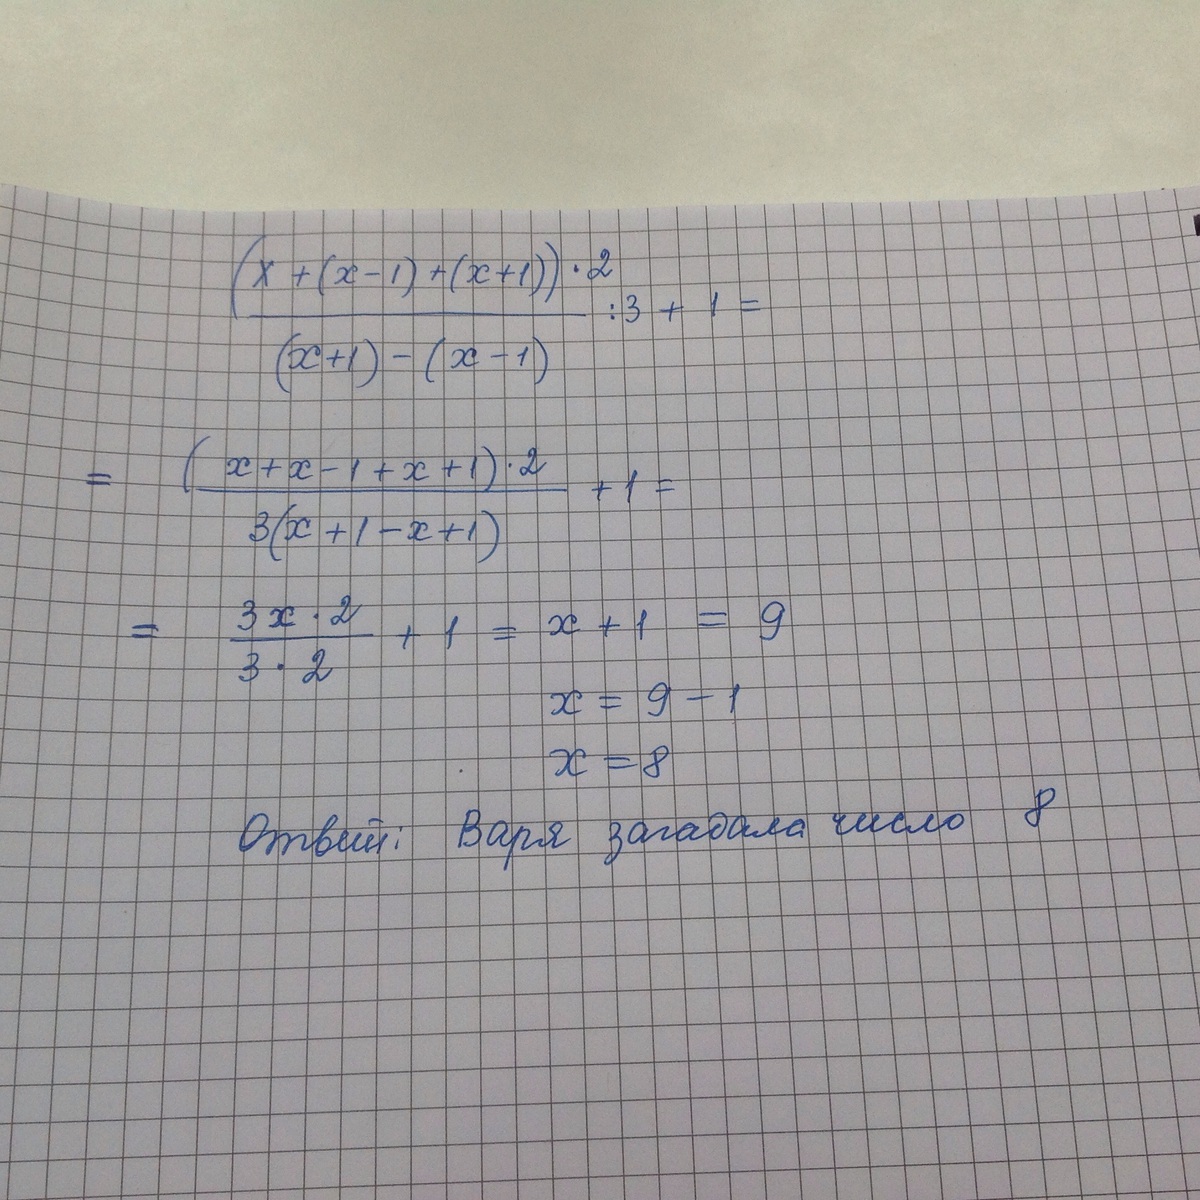 (x + (x - 1) + (x + 1)) · 2
: 3 + 1 =
(x + 1) - (x - 1)
= (x + x - 1 + x + 1) · 2
+ 1 =
3(x + 1 - x + 1)
= 3x · 2
+ 1 = x + 1 = 9
3 · 2
x = 9 - 1
x = 8
Ответ: Варя загадала число 8